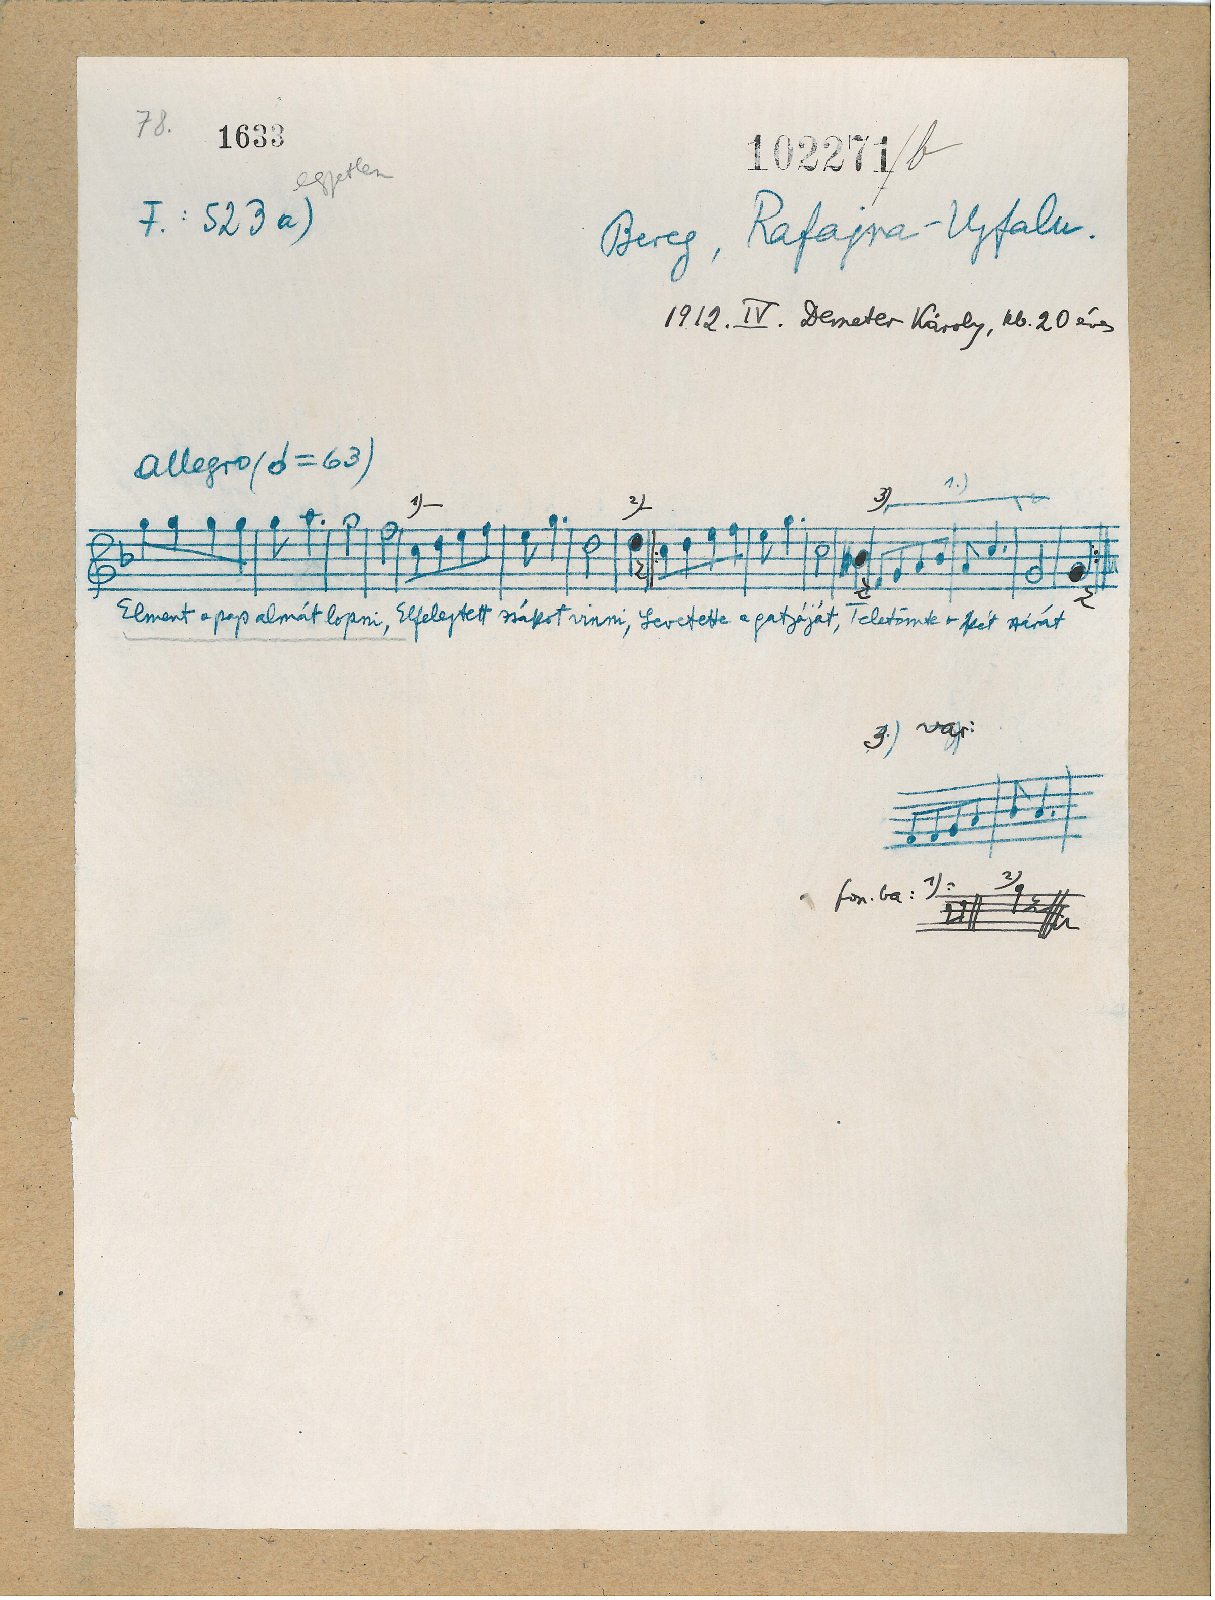 78.
1633
102271/b
egyetlen
F.: 523 a)
Bereg, Rafajna-Ujfalu.
1912. IV. Demeter Károly, kb. 20 éves
Allegro (𝅗𝅥 = 63)
1) 2) 3) 1.)
Elment a pap almát lopni, Elfelejtett zsákot vinni, Levetette a gatyáját, Teletömte a két szárát
3.) var:
fon. ba: 1) : 2)